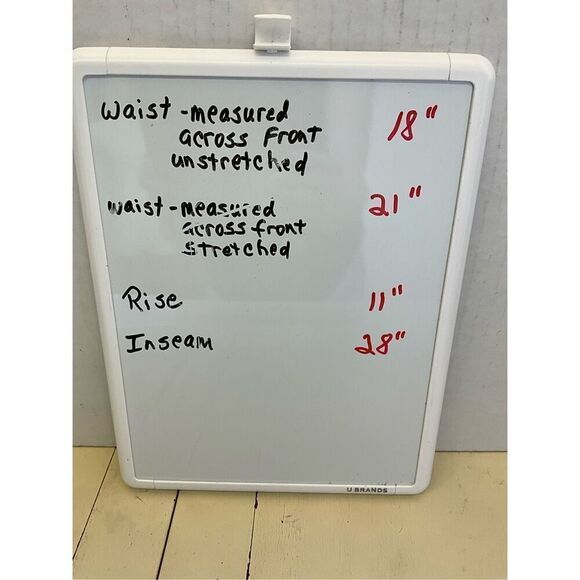 Waist - measured 18"
across Front
unstretched
waist - measured 21"
across front
Stretched
Rise 11"
Inseam 28"
U BRANDS